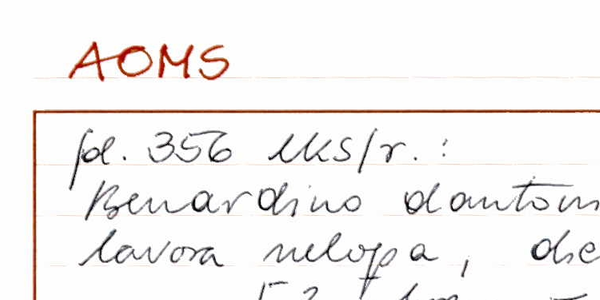 AOMS
fol. 356 MKS/r. :
Benardino dantoni
lavora nelopa, die